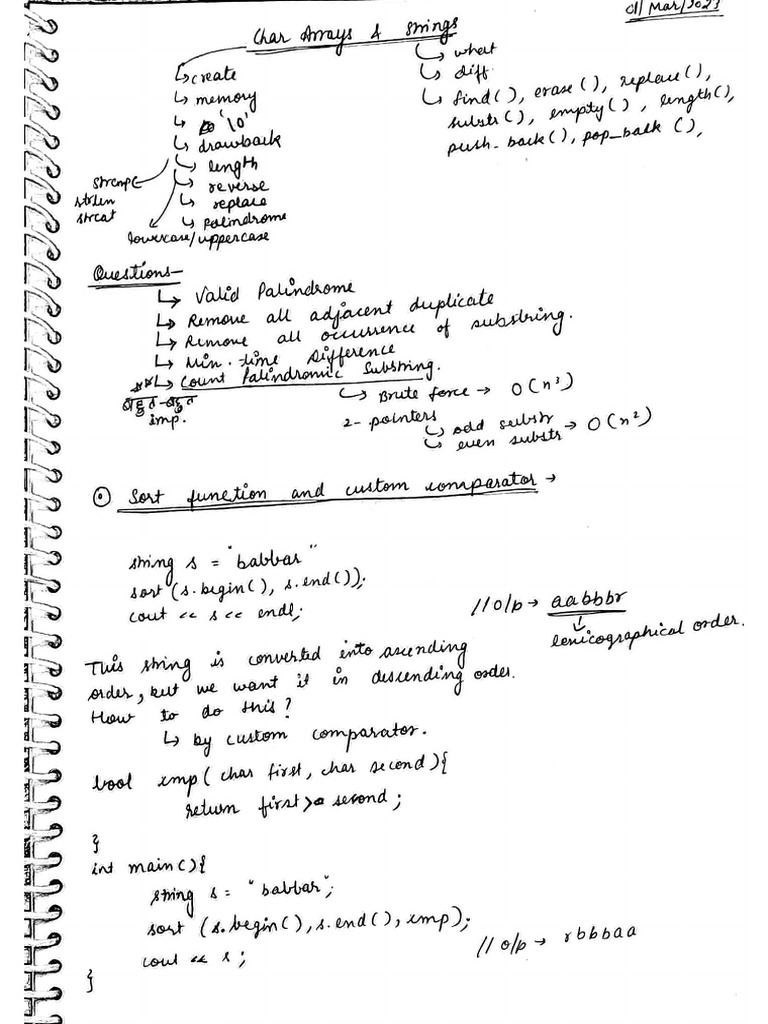 01/Mar/2023
Char Arrays & Strings
↳ create
↳ memory
↳ '\0'
↳ drawback
↳ length
↳ reverse
↳ replace
↳ palindrome
lowercase/uppercase
strcmp
strlen
strcat
↳ what
↳ diff.
↳ find(), erase(), replace(),
substr(), empty(), length(),
push_back(), pop_back(),
Questions-
↳ Valid Palindrome
↳ Remove all adjacent duplicate
↳ Remove all occurrence of substring.
↳ Min. time Difference
**↳ Count Palindromic Substring.
imp.
↳ Brute force → O(n³)
2-pointers
↳ odd substr
↳ even substr → O(n²)
⊙ Sort function and custom comparator →
string s = "babbar"
sort (s.begin(), s.end());
cout << s << endl;
//o/p → aabbbr
↳ lexicographical order.
This string is converted into ascending
order, but we want it in descending order.
How to do this?
↳ by custom comparator.
bool cmp( char first, char second){
return first > second;
}
int main(){
string s = "babbar";
sort (s.begin(), s.end(), cmp);
cout << s;
// o/p → rbbbaa
}